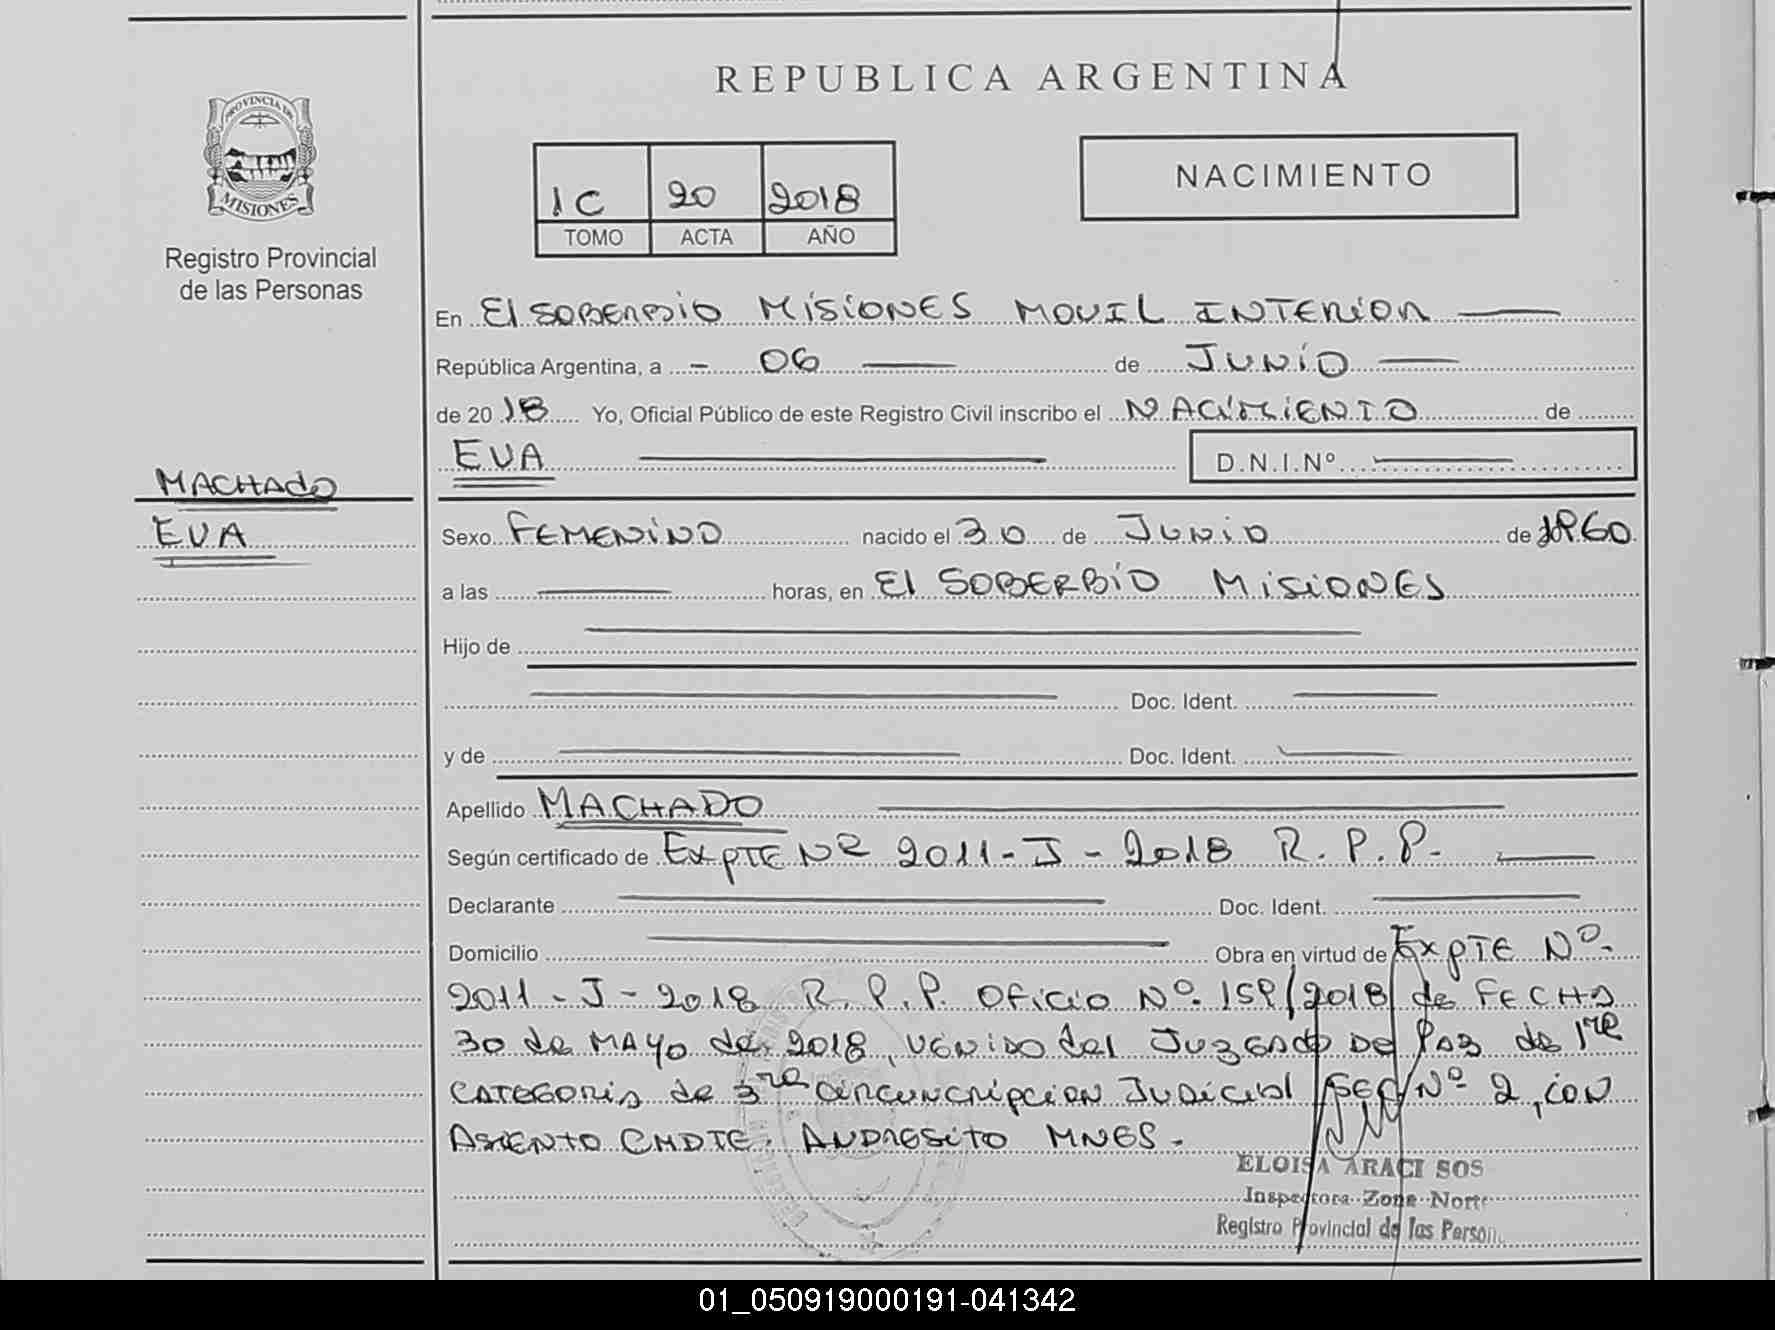 REPUBLICA ARGENTINA
PROVINCIA DE
MISIONES
Registro Provincial
de las Personas
1C 20 2018
TOMO ACTA AÑO
NACIMIENTO
En El SOBERBIO MISIONES MOVIL INTERIOR
República Argentina, a - 06 de JUNIO
de 2018 Yo, Oficial Público de este Registro Civil inscribo el NACIMIENTO de
EVA D.N.I.Nº
MACHADO
EVA
Sexo FEMENINO nacido el 30 de JUNIO de 1960
a las horas, en El SOBERBIO MISIONES
Hijo de
Doc. Ident.
y de Doc. Ident.
Apellido MACHADO
Según certificado de EXPTE Nº 2011-J-2018 R.P.P.
Declarante Doc. Ident.
Domicilio Obra en virtud de EXPTE Nº.
2011-J-2018 R.P.P. OFICIO Nº. 159/2018 de FECHA
30 de MAYO de 2018, VENIDO del JUZGADO DE PAZ de 1re
CATEGORIA de 3re CIRCUNCRIPCION JUDICIAL SEC Nº 2, CON
ASIENTO CMDTE. ANDRESITO MNES.
ELOISA ARACI SOS
Inspectora Zona Norte
Registro Provincial de las Person
01_050919000191-041342